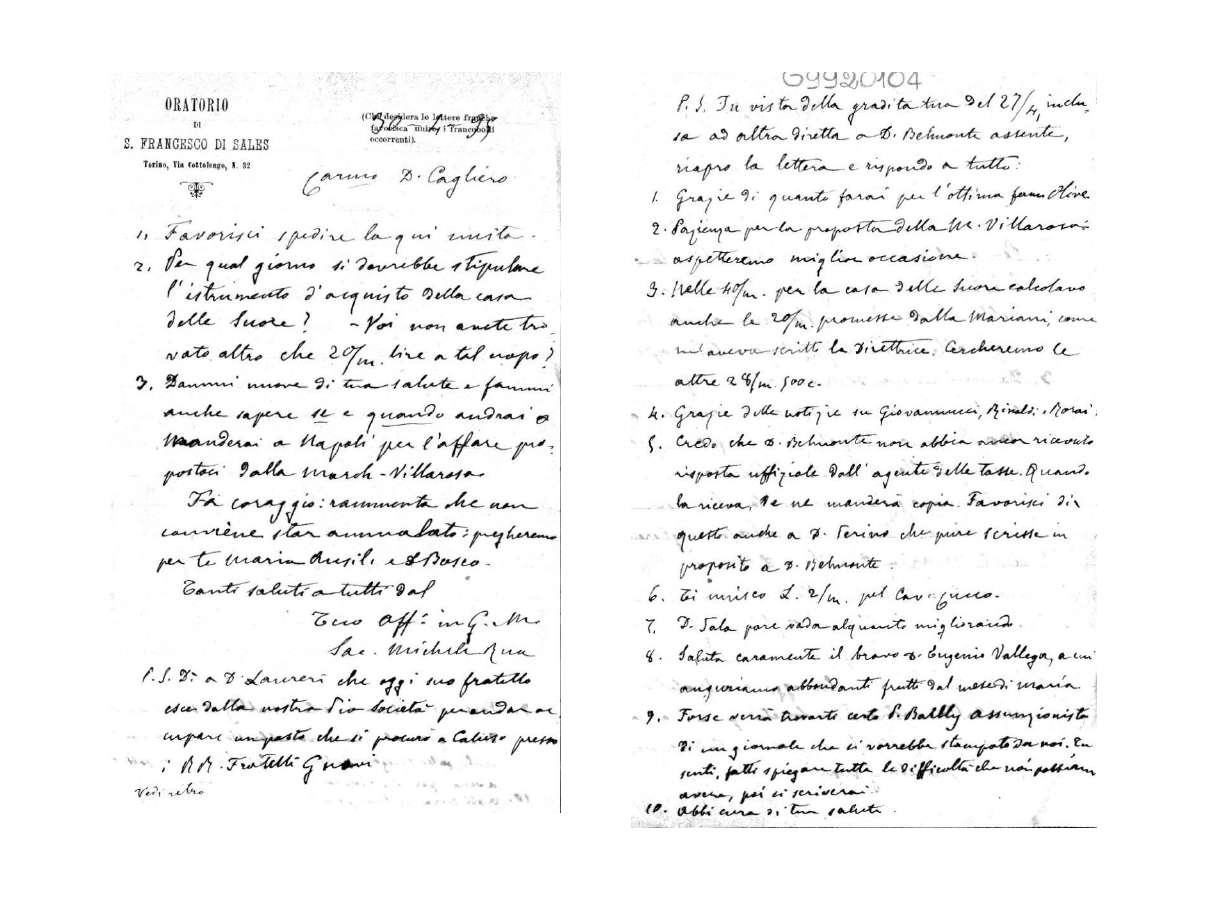 ORATORIO
DI
S. FRANCESCO DI SALES
Torino, Via Cottolengo, N. 32
(Chi desidera le lettere franche
favorisca unire i francobolli
occorrenti).
Carmo D. Cagliero
1, Favorisci spedire la qui unita.
2. Per qual giorno si dovrebbe stipulare
l'istrumento d'acquisto della casa
delle Suore? - Voi non avete tro-
vato altro che 20/m. lire a tal uopo?
3, Dammi nuove di tua salute e fammi
anche sapere se e quando andrai o
manderai a Napoli per l'affare pro-
postoci dalla March. Villarosa
Fa coraggio: rammenta che non
conviene star ammalato: pregheremo
per te Maria Ausil. e D Bosco.
Tanti saluti a tutti dal
Tuo Aff. in G. M.
Sac. Michele Rua
P.S. Di a D. Laureri che oggi suo fratello
esce dalla nostra Pia Società per andar oc
cupare un posto che si procurò a Caluso presso
i RR. Fratelli
Vedi retro
G9920104
P.S. In vista della gradita tua del 27/4, inclu-
sa ad altra diretta a D. Belmonte assente,
riapro la lettera e rispondo a tutto:
1. Grazie di quanto farai per l'ottima fam Olive
2. Pazienza per la proposta della M. Villarosa:
aspetteremo miglior occasione.
3. Nelle 40/m. per la casa delle Suore calcolavo
anche le 20/m. promesse dalla Mariani, come
m'aveva scritto la Direttrice. Cercheremo le
altre 28/m 500 c.
4. Grazie delle notizie su Giovannucci, Rinaldi,
5. Credo che D. Belmonte non abbia ancor ricevuto
risposta uffiziale dall'agente delle tasse. Quando
la riceva, te ne manderà copia. Favorisci dir
questo anche a D. che pure scrisse in
proposito a D. Belmonte.
6. Ti unisco L. 2/m. pel Cav.
7. D. Sala pare vada alquanto migliorando.
8. Saluta caramente il bravo D. Eugenio Vallega, a cui
auguriamo abbondanti frutti dal mese di Maria
9. Forse verrà trovarti certo P. Bailly Assunzionista
di un giornale che si vorrebbe stampato da noi.
senti, fatti spiegar tutte le difficoltà che noi possiam
avere, poi ci scriverai.
10. Abbi cura di tua salute.